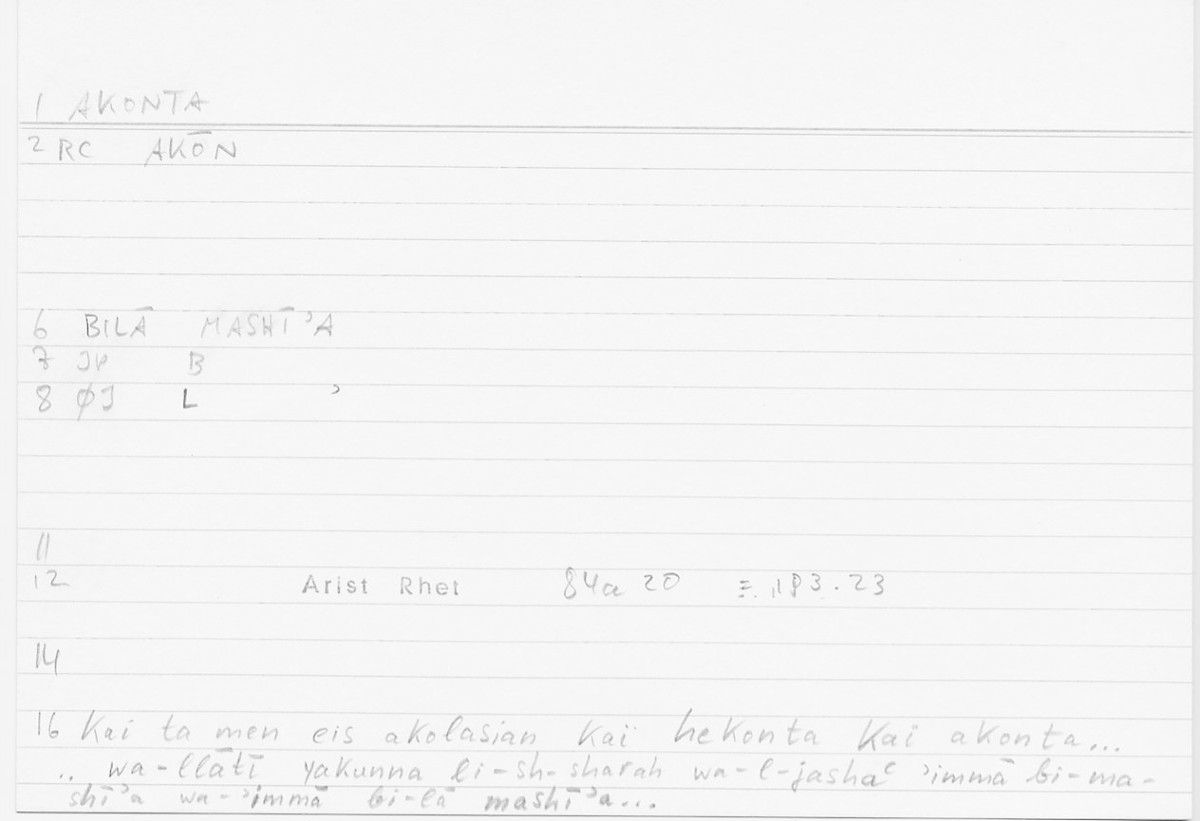 1 AKONTA
2 RC AKŌN
6 BILĀ MASHĪʾA
7 JP B
8 ØJ L ʾ
11
12 Arist Rhet 84a 20 Ξ 183.23
14
16 Kai ta men eis akolasian kaï hekonta kai akonta...
.. wa-llātī yakunna li-sh-sharah wa-l-jashaʿ ʾimmā bi-ma-
shīʾa wa-ʾimmā bi-lā mashīʾa...